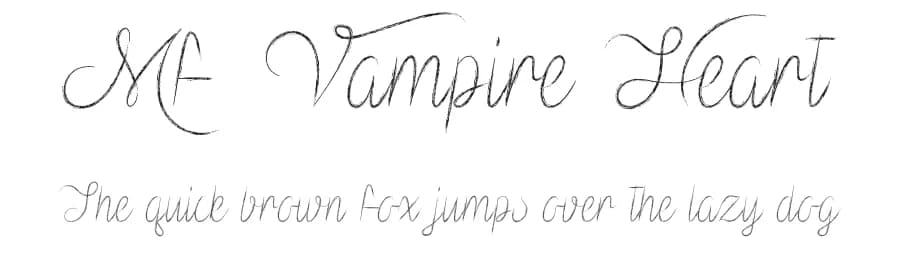 Mf Vampire Heart
The quick brown fox jumps over the lazy dog